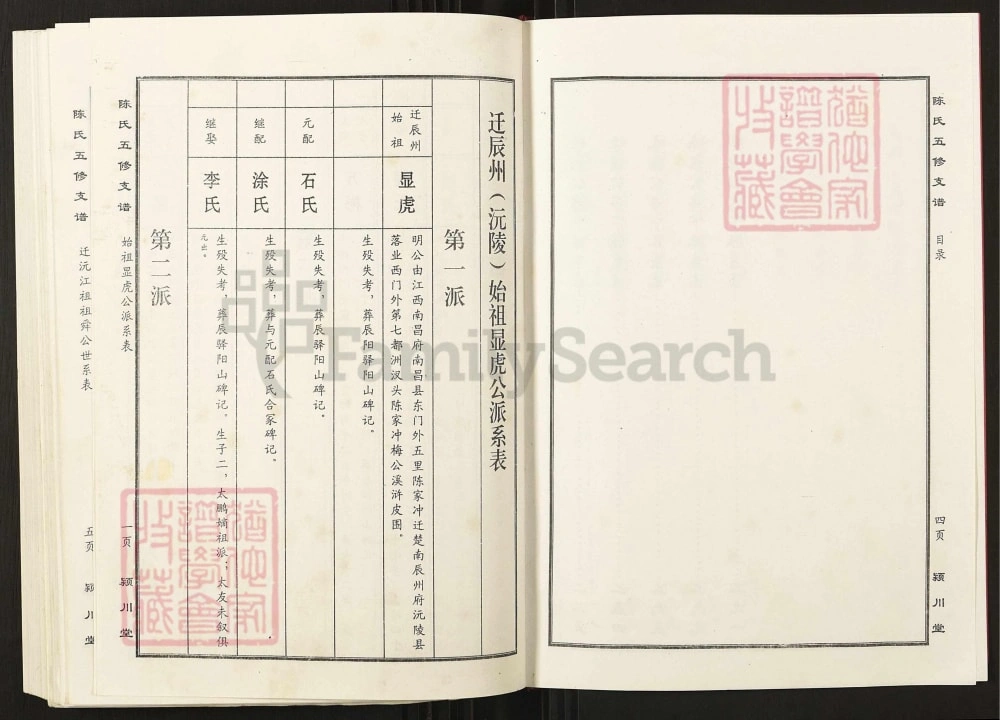 陈氏五修支谱
目录
四页
颍川堂
猶他家譜學會收藏
迁辰州（沅陵）始祖显虎公派系表
第一派
迁辰州始祖
显虎
明公由江西南昌府南昌县东门外五里陈家冲迁楚南辰州府沅陵县
落业西门外第七都洲汊头陈家冲梅公溪浒皮围。
生殁失考，葬辰阳驿阳山碑记。
元配
石氏
生殁失考，葬辰驿阳山碑记。
继配
涂氏
生殁失考，葬与元配石氏合冢碑记。
继娶
李氏
生殁失考，葬辰驿阳山碑记。生子二，太鹏嫡祖派；太友未叙俱
元出。
第二派
陈氏五修支谱
始祖显虎公派系表
一页
颍川堂
猶他家譜學會收藏
陈氏五修支谱
迁沅江祖祖舜公世系表
五页
颍川堂
FamilySearch